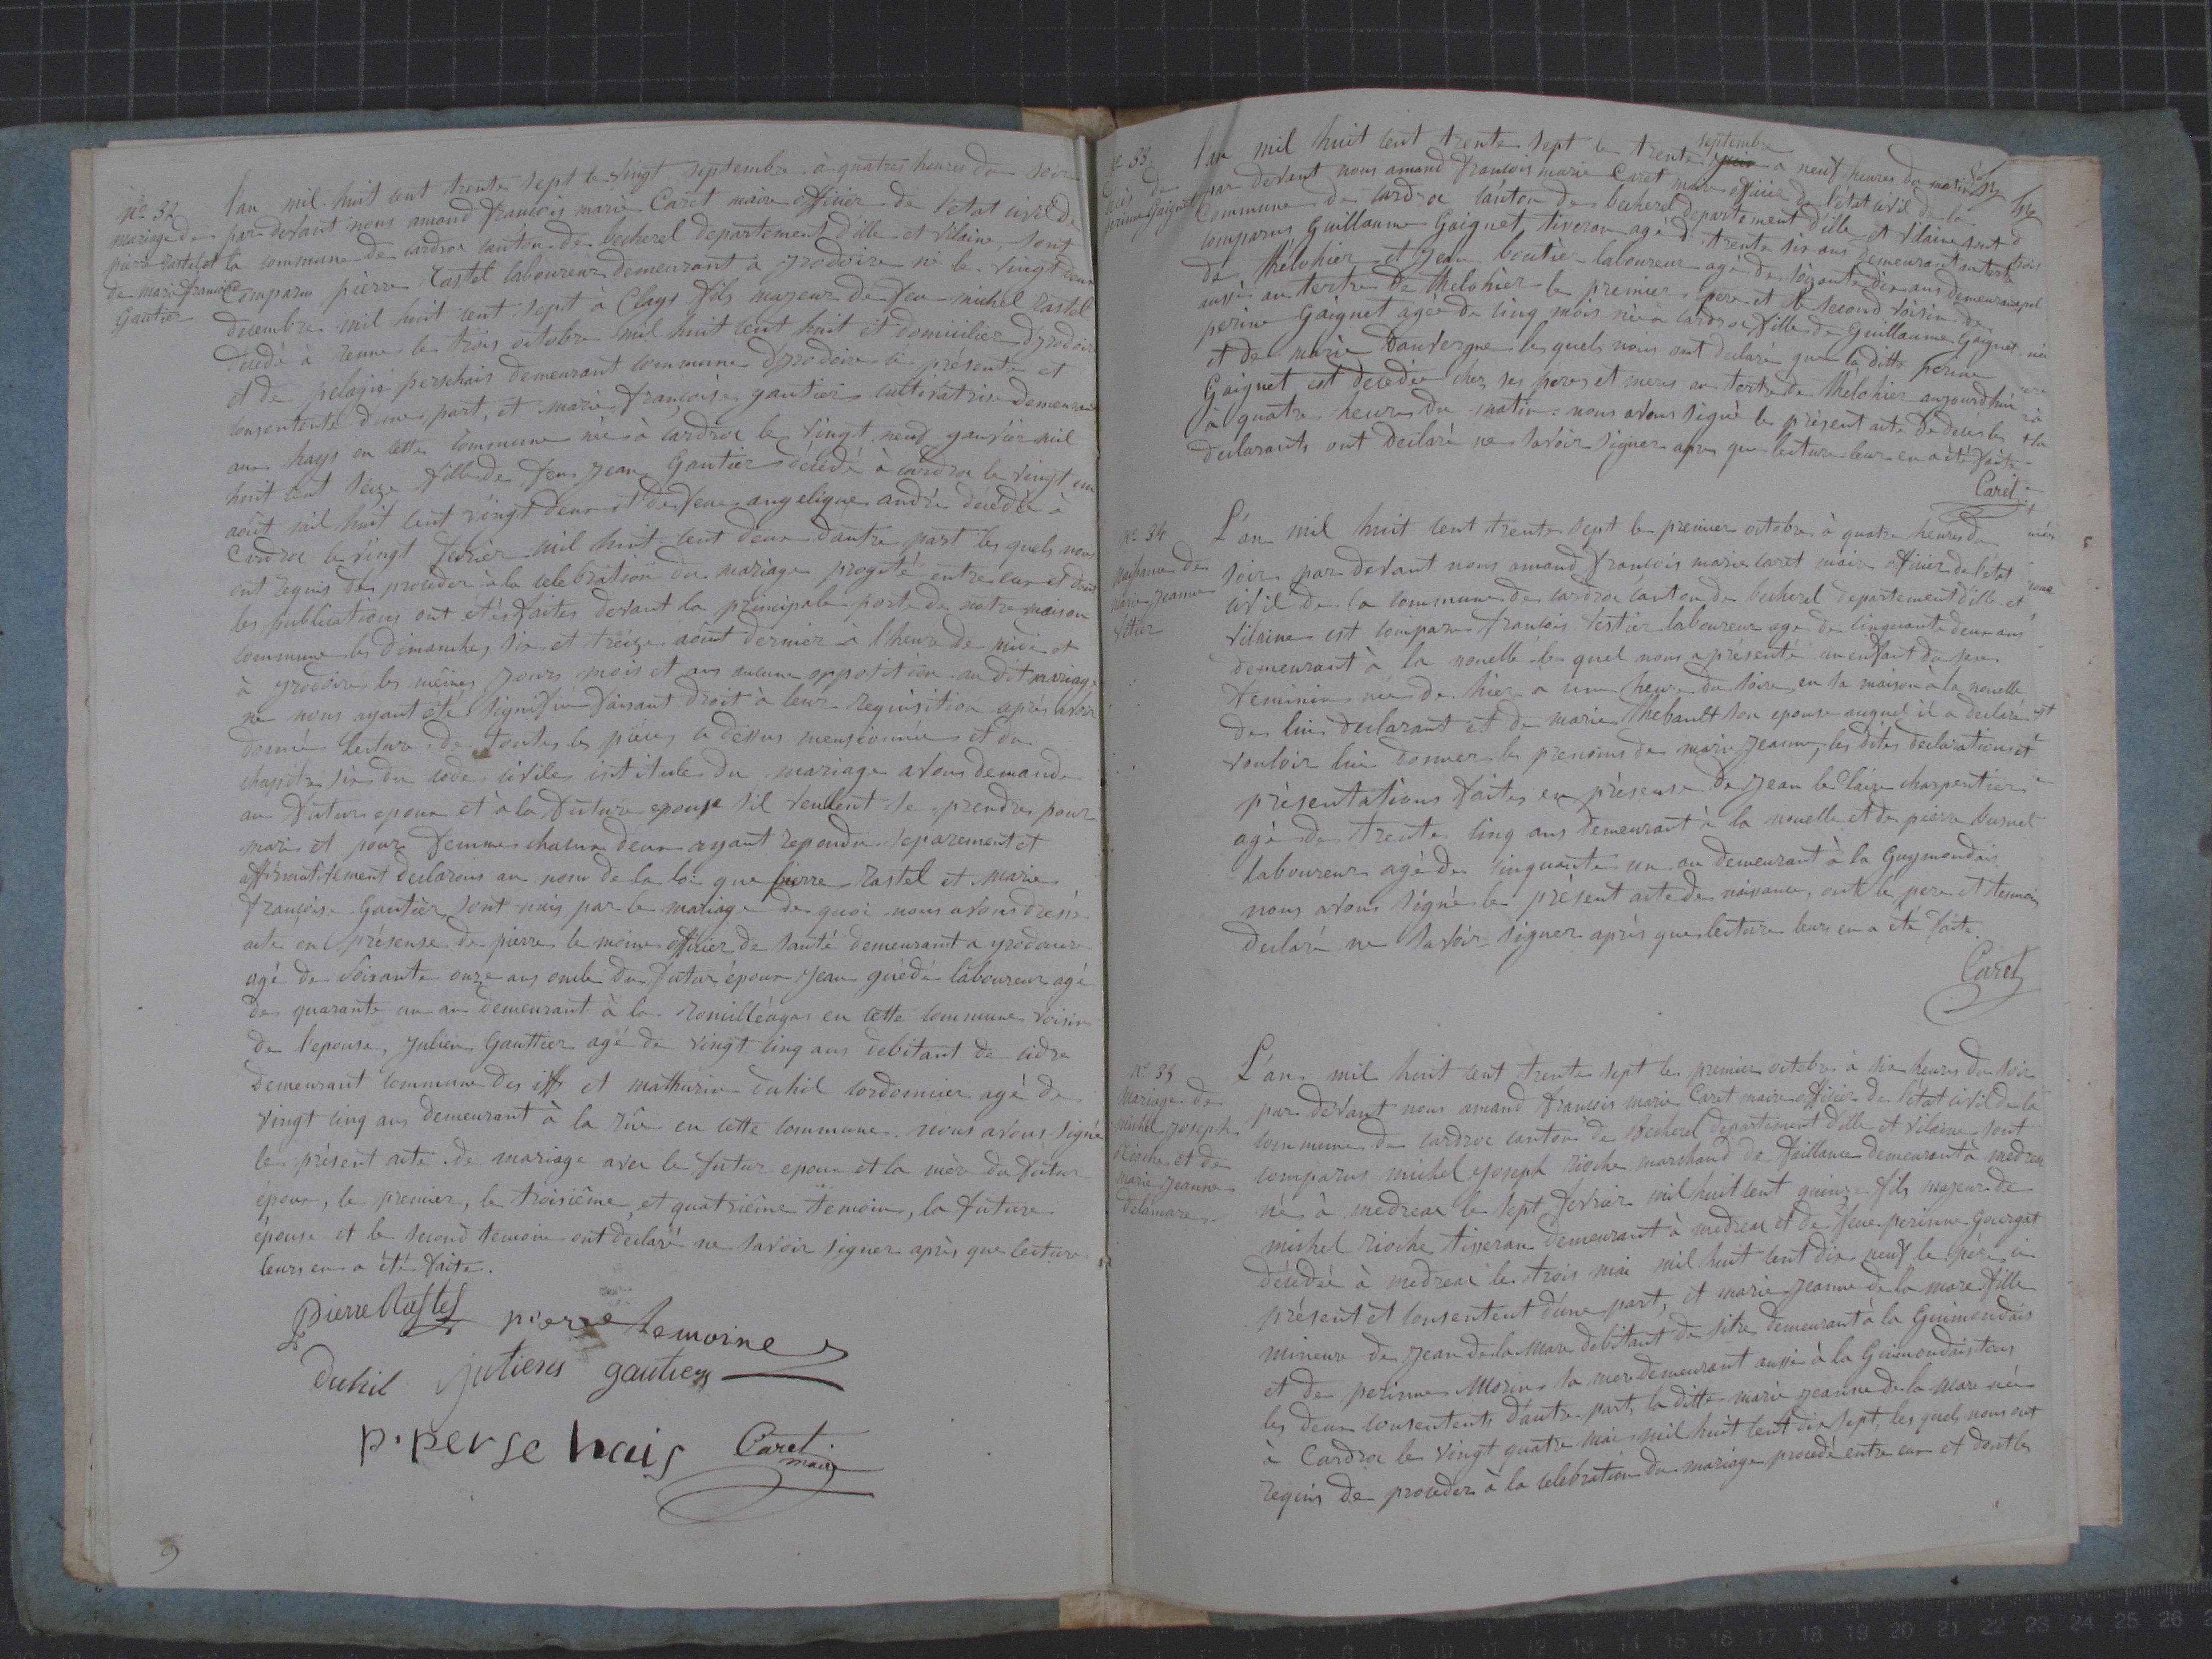 nº 32
mariage de
pierre rastel et
de marie françoise
Gautier
l'an mil huit cent trente sept le vingt septembre à quatres heures du soir
par devant nous amand françois marie Caret maire officier de l'etat civil de
la commune de cardroc canton de becherel departement d'ille et vilaine, sont
comparu pierre rastel laboureur demeurant a yrodoire né le vingt deux
decembre mil huit cent sept à Clays fils majeur de feu michel rastel
décédé à renne le trois octobre mil huit cent huit et domicilier dyrodoire
et de pelagie persehais demeurant commune dyrodoire ci présente et
consentente d'une part, et marie françoise gautier cultivatrise demeurant
aux hays en cette commune née à cardroc le vingt neuf janvier mil
huit cent seize fille de feu jean Gautier décédé à cardroc le vingt un
août mil huit cent vingt deux et de feue angelique andré décédée à
Cardroc le vingt fevrier mil huit cent deux d'autre part les quels nous
ont requis de proceder à la celebration du mariage progeté entre eux et dont
les publications ont étés faites devant la principale porte de notre maison
commune les dimanches six et treize aôut dernier à l'heure de midi et
à yrodoire les mêmes jours mois et ans aucune opposition au dit mariage
ne nous ayant été signifiée faisant droit à leur requisition après avoir
donné lecture de toutes les pièces ci dessus mensionnées et du
chapitre six du code civile intitule du mariage avons demandé
au futur epoux et à la future epouse s'il veullent se prendre pour
mari et pour femme chacun deux ayant repondu separement et
affirmativement declarons au nom de la loi que pierre rastel et marie
françoise Gautier sont unis par le mariage de quoi nous avons dressé
acte en présense de pierre le moine officier de santé demeurant a yrodoire
agé de soisante onze ans oncle du futur époux jean guédé laboureur agé
de quarante un an demeurant à la en cette commune voisin
de l'epouse, julien Gauttier agé de vingt cinq ans debitant de cidre
demeurant commune des iffs et mathurin duhil cordonnier agé de
vingt cinq ans demeurant à la rûe en cette commune. nous avons signé
le présent acte de mariage avec le futur epoux et la mère du futur
époux, le premier, le troisième, et quatrième temoins, la future
épouse et le second temoin ont declaré ne savoir signer après que lecture
leurs en a été faite.
pierre Rastel pierre Lemoine
Duhil julien gautier
p. persehais Caret
maire
9
nº 33
de
perinne Gaignet
l'an mil huit cent trente sept le trente juin septembre a neuf heures du matin
par devent nous amand francois marie Caret maire officier de l'état civil de la
Commune de cardroc canton de becherel departement d'ille et vilaine sont
comparus Guillaume Gaignet, tiseron agé d trente six ans demeurant au tertre
de thélohier et jean boutier laboureur agé de soixante dix ans demeurant
aussi au tertre de thelohier le premier père et le second voisin de
perine Gaignet agée de cinq mois née a cardroc fille de Guillaume Gaignet
et de marie Dauvergne les quels nous ont declaré que la ditte perine
Gaignet est decedée chez ses peres et meres au tertre de thélohier aujourdhui
à quatre heures du matin: nous avons signé le présent acte de décès les
declarants ont declaré ne savoir signer apres que lecture leur en a été faite
Caret
nº 34
naissance de
marie jeanne
vétier
L'an mil huit cent trente sept le premier octobre à quatre heures du
soir par devant nous amand francois marie caret maire officier de l'état
civil de la commune de cardroc canton de becherel departement d'ille et
vilaine est comparu francois vestier laboureur agé de cinquante deux ans
demeurant à la nouelle le quel nous a présenté un enfant du sexe
feminin née de hier a une heure du soire en sa maison à la nouelle
de lui declarant et de marie thebault son epouse auquel il a declaré
vouloir lui donner les prenoms de marie jeanne, les dites declarations et
présentations faites en présense de jean le claire charpentier
agé de trente cinq ans demeurant à la nouelle et de pierre busnel
laboureur agé de cinquante un an demeurant à la Guymondais
nous avons signé le présent acte de naisance, ont le pere et temoins
declaré ne savoir signer après que lecture leurs en a été faite.
Caret
nº 35
mariage de
michel joseph
rioche et de
marie jeanne
delamare
L'an mil huit cent trente sept le premier octobre à six heures du soir
par devant nous amand francois marie Caret maire officier de l'état civil de la
commune de cardroc canton de Becherel departement d'ille et vilaine sont
comparus michel joseph rioche marchand de faillance demeurant à medreac
né à medreac le sept fevrier mil huit cent quinze fils majeur de
michel rioche tisseran demeurant à medreac et de feue perinne Gourget
décédée à medreac le trois mai mil huit cent dix neuf le père ci
présent et consentent d'une part, et marie jeanne de la mare fille
mineure de jean de la mare debitant de sitre demeurant à la Guimondais
et de perinne Morin sa mere demeurant aussi à la Guimondais tous
les deux consentents d'autre part, la ditte marie jeanne de la mare née
à Cardroc le vingt quatre mai mil huit cent dix sept, les quels nous ont
requis de proceder à la celebration du mariage procedé entre eux et dont les